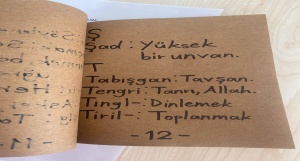 Ş
Şad : Yüksek
bir unvan.
T
Tabışgan : Tavşan.
Tengri : Tanrı, Allah.
Tıngl- : Dinlemek
Tiril- : Toplanmak
- 12 -